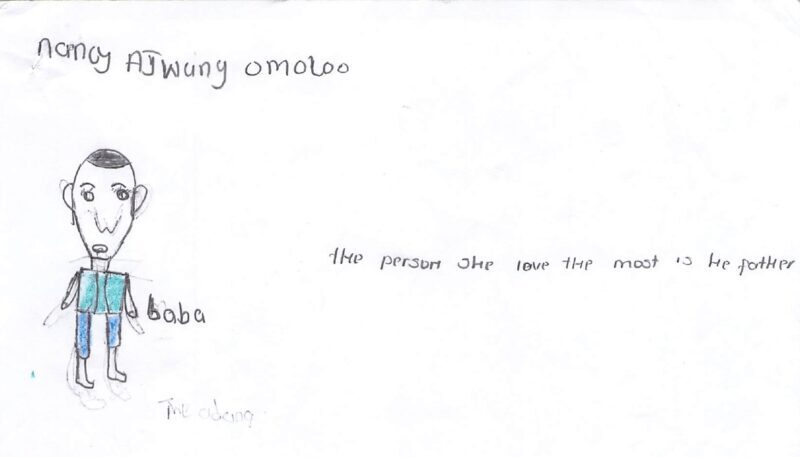 nancy AJwang omoloo
the person she love the most is he father
baba
The